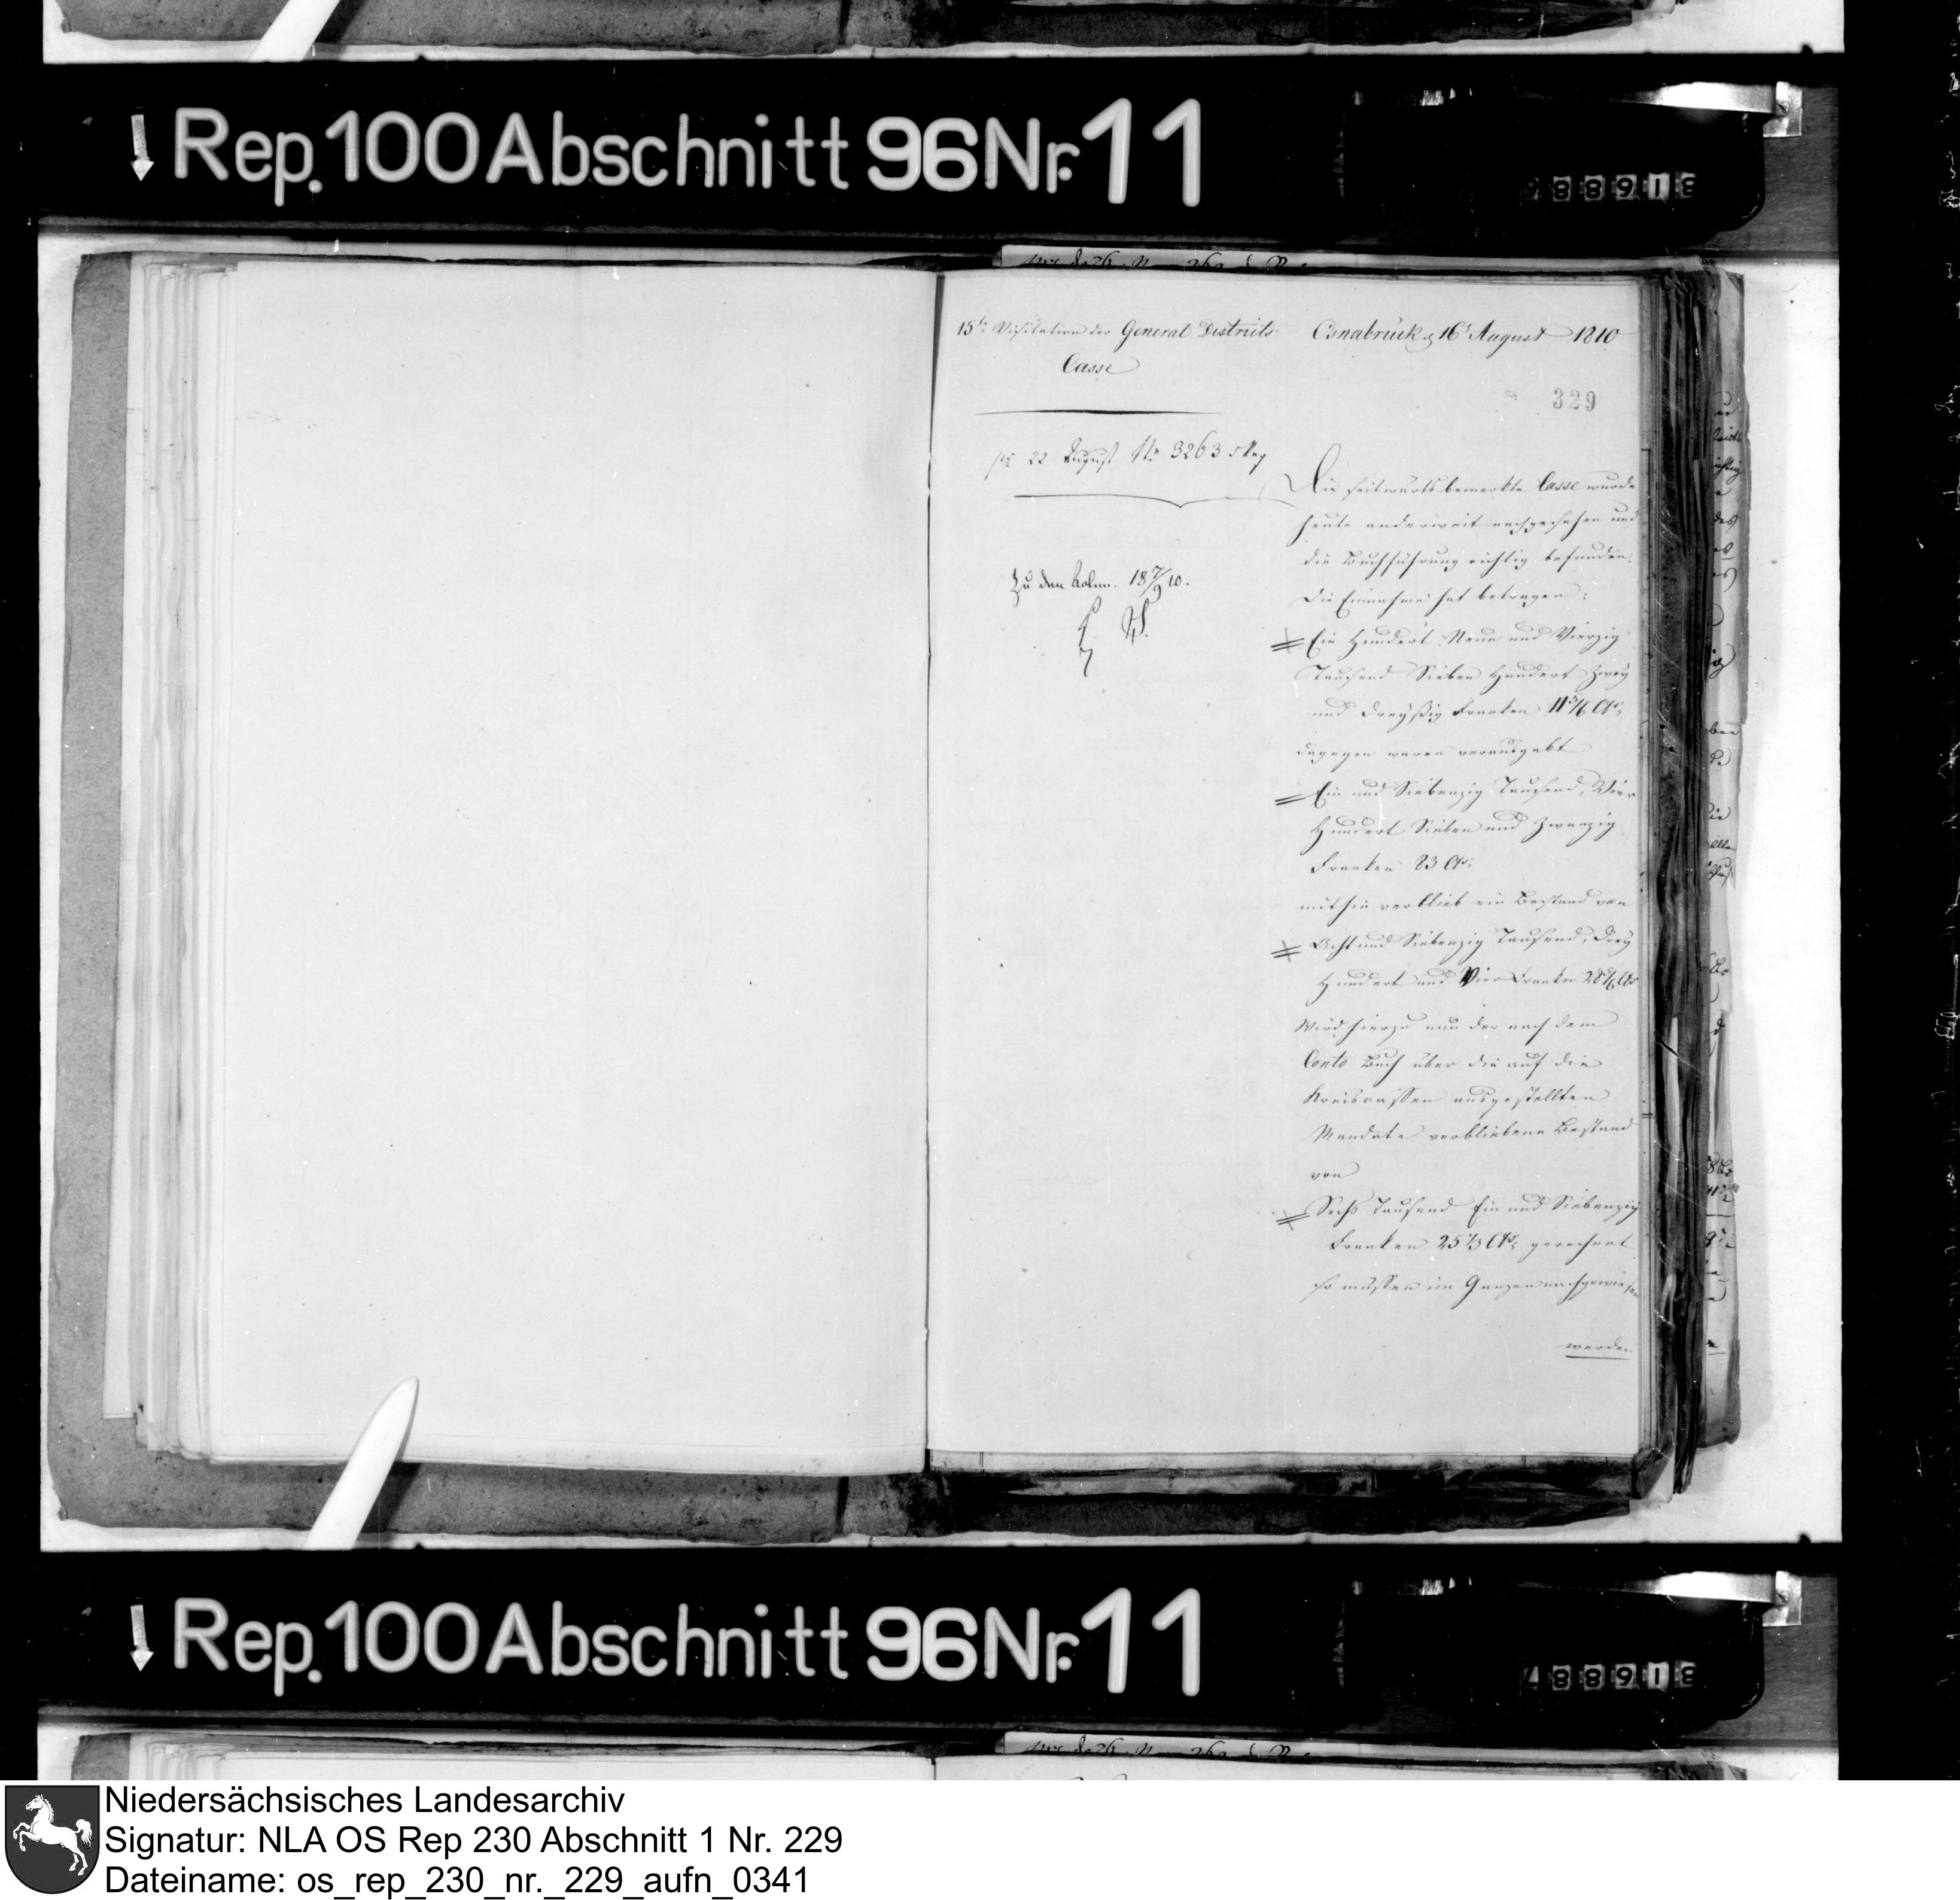 Rep. 100 Abschnitt 96 Nr. 11
15te Visitation der General Districts
Casse
Osnabrück d 16t August 1810
329
22 August No 3263
Zu den Colm. 18 7/9 10.
Die seitwärts bemerkte Casse wurde
heute anderweit nachgesehen und
die Buchführung richtig befunden.
Die Einnahme hat betragen:
Ein Hundert Neun und Vierzig
Tausend Sieben Hundert Zwey
und dreyßig Franken 11 5/6 Cts
dagegen waren verausgabt
Ein und Siebenzig Tausend, Vier
Hundert Sieben und Zwanzig
Franken 83 Cts
mithin verblieb ein Bestand von
Acht und Siebenzig Tausend, Drey
Hundert und Vier Franken 28 5/6 Cts
Wird hierzu nun der nach dem
Conto Buch über die auf die
Kreiscassen ausgestellten
Mandate verbliebene Bestand
von
Sechs Tausend Ein und Siebenzig
Franken 25 1/3 Cts gerechnet
so müssen im Ganzen nachgewiesen
werden
Rep. 100 Abschnitt 96 Nr. 11
Niedersächsisches Landesarchiv
Signatur: NLA OS Rep 230 Abschnitt 1 Nr. 229
Dateiname: os_rep_230_nr._229_aufn_0341